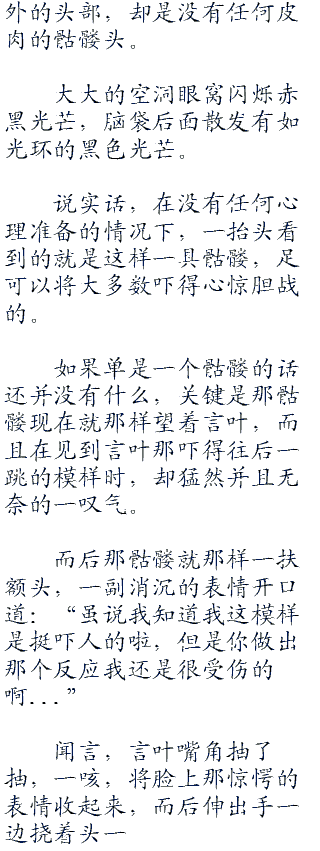 外的头部，却是没有任何皮
肉的骷髅头。
大大的空洞眼窝闪烁赤
黑光芒，脑袋后面散发有如
光环的黑色光芒。
说实话，在没有任何心
理准备的情况下，一抬头看
到的就是这样一具骷髅，足
可以将大多数吓得心惊胆战
的。
如果单是一个骷髅的话
还并没有什么，关键是那骷
髅现在就那样望着言叶，而
且在见到言叶那吓得往后一
跳的模样时，却猛然并且无
奈的一叹气。
而后那骷髅就那样一扶
额头，一副消沉的表情开口
道：“虽说我知道我这模样
是挺吓人的啦，但是你做出
那个反应我还是很受伤的
啊...”
闻言，言叶嘴角抽了
抽，一咳，将脸上那惊愕的
表情收起来，而后伸出手一
边挠着头一